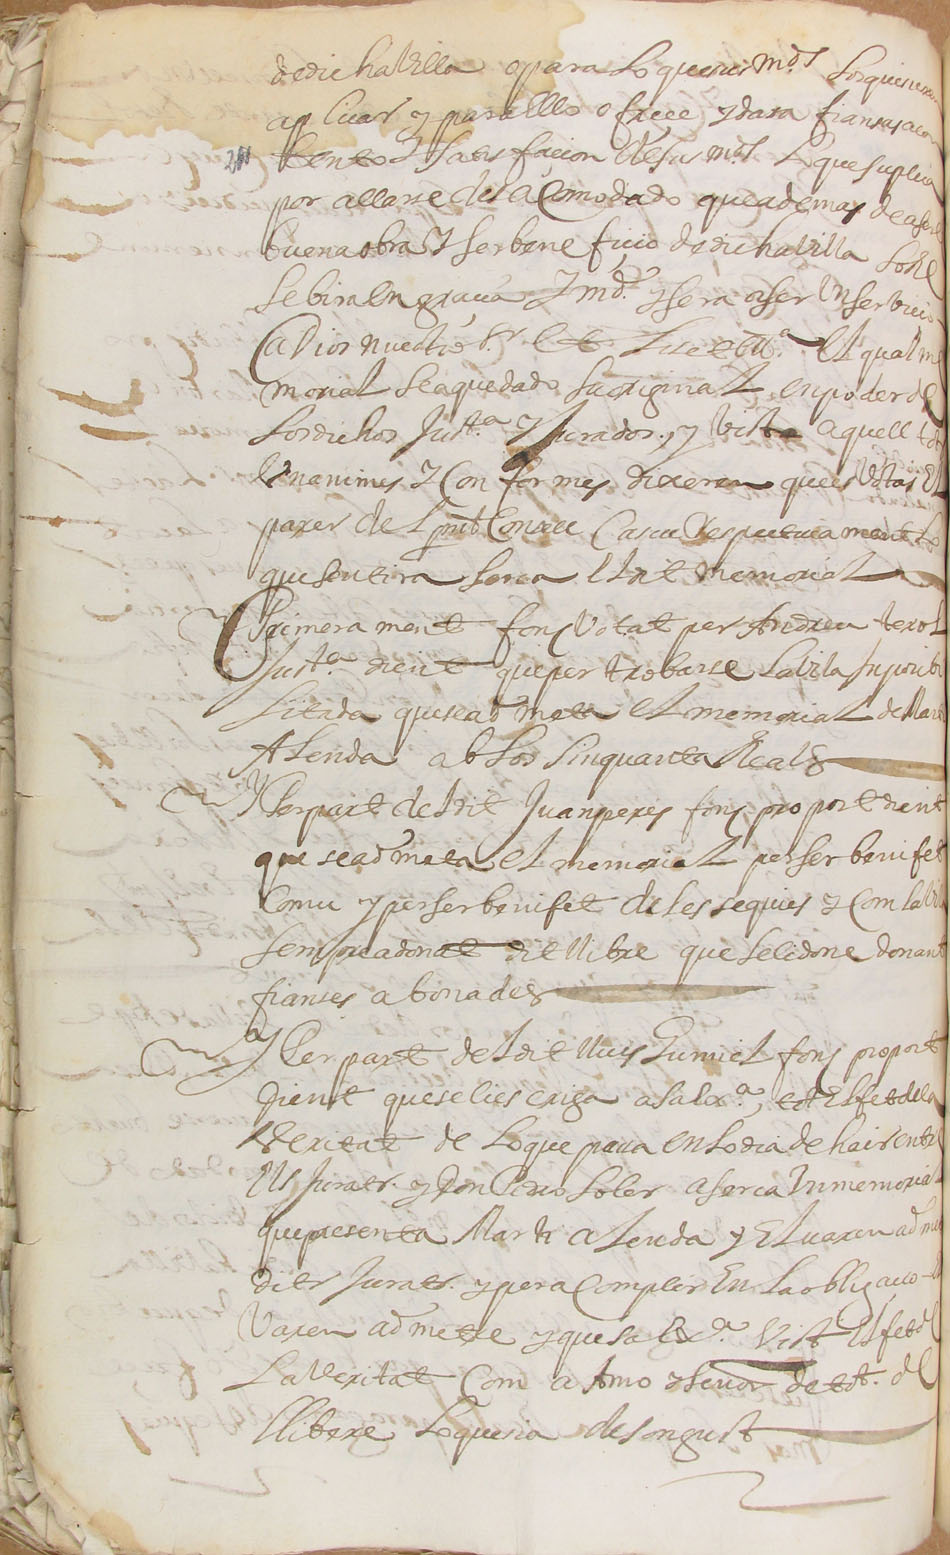 de dicha Villa o para lo que sus mds los quisieran
aplicar y para ello ofrece y dara fiansas a con
tento y satisfacion de sus mds lo que suplica
por allarse desacomodado que ademas de aser
buena obra y ser benefficio de dicha Villa lo Re
sebira en gracia y md. y sera aser un servicio
a Dios nuestro Sr. Et Licet Etta. El qual me
morial se a quedado su original en poder de
los dichos Justa. y Jurados. y Vist aquell tot
Unanimes y Conformes dixeren que es Votas El
parer del pnt Consell Cascu Respectivament lo
que sentira serca el dit memorial
Primerament fonch Votat per Andreu terol
Justa. dient que per trobarse la Vila Inposibi
litada que se ad meta el memorial de Marti
Alenda ab los sinquanta Reals
Y Per part de dit Juan peres fonch proport dient
que se ad meta el memorial per ser benifet
Comu y per ser benifet de les sequies y Com la Vila
sempre a donat dit llibre que se li done donant
fianses abonades
Y Per part del dit lluis Gumiel fonch proport
Dient que se li escriga a sa Exa. tot El fet de la
Veritat de lo que pasa en lo dia de hair entre
Els Jurats. y Don Pedro Soler a serca Un memorial
que presenta Marti Alenda y El varen ad metre
dits Jurats. y pera Complir En la obligacio
Varen ad metre y que sa Exa. Vist El fet de
la Veritat Com a Amo y señor de tot. de
llibere lo que sia de son gust